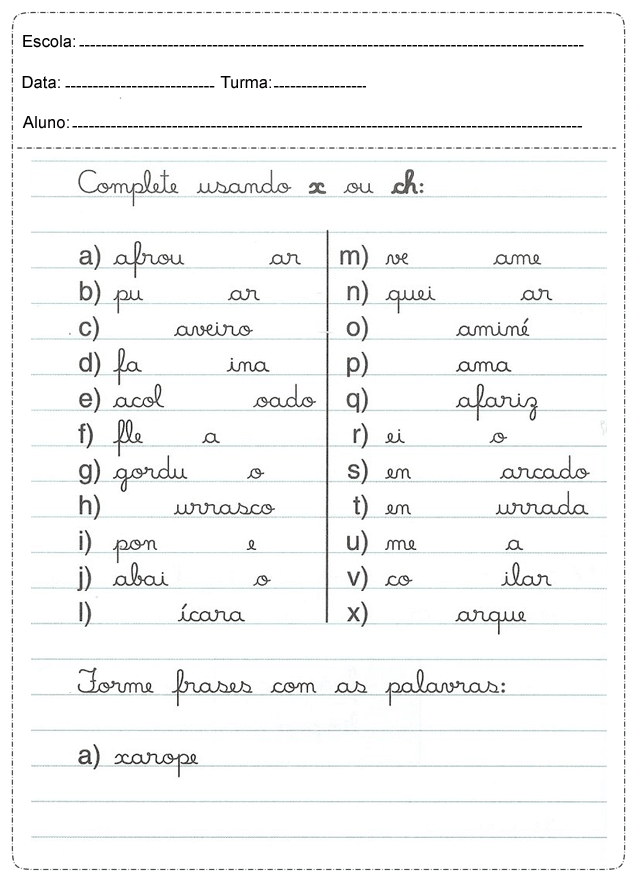 Escola:
Data: Turma:
Aluno:
Complete usando x ou ch:
a) afrou ar
b) pu ar
c) aveiro
d) fa ina
e) acol oado
f) fle a
g) gordu o
h) urrasco
i) pon e
j) abai o
l) ícara
m) ve ame
n) quei ar
o) aminé
p) ama
q) afariz
r) ei o
s) en arcado
t) en urrada
u) me a
v) co ilar
x) arque
Forme frases com as palavras:
a) xarope